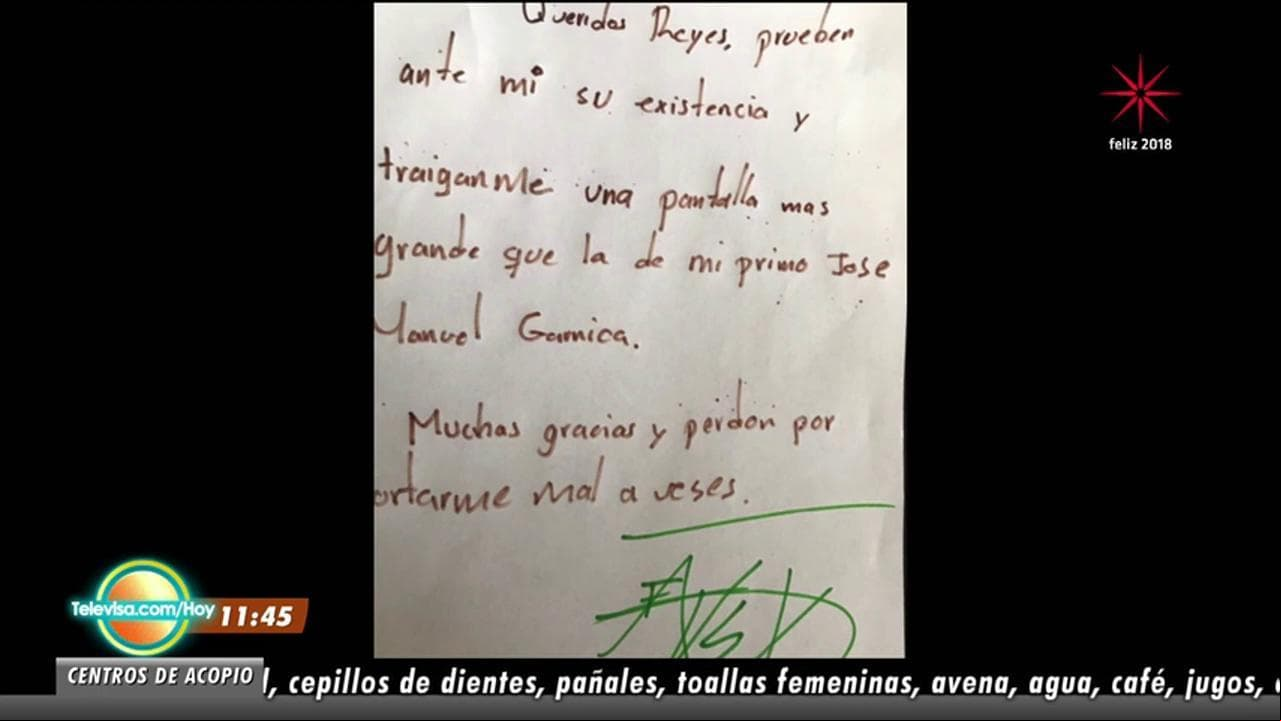 Queridos Reyes, prueben
ante mi su existencia y
traiganme una pantalla mas
grande que la de mi primo Jose
Manuel Garnica.
Muchas gracias y perdon por
ortarme mal a veses.
feliz 2018
Televisa.com/Hoy 11:45
CENTROS DE ACOPIO
, cepillos de dientes, pañales, toallas femeninas, avena, agua, café, jugos,